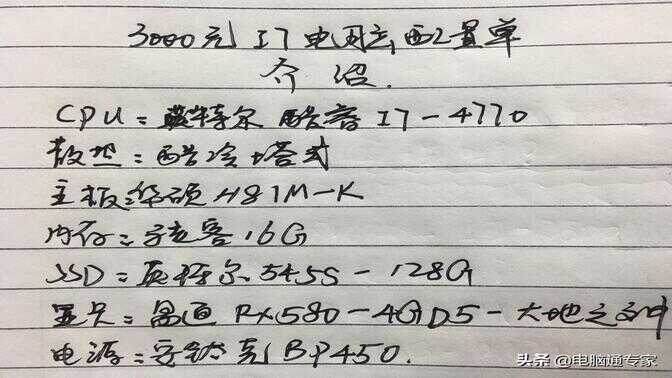 3000元I7电脑主机配置单
介绍.
CPU:英特尔 酷睿I7-4770
散热:酷冷塔式
主板:华硕H81M-K
内存:宇瞻16G
SSD:英特尔545S-128G
显卡:RX580-4GD5-大地之神
电源:安钛克BP450.
头条 @电脑通专家